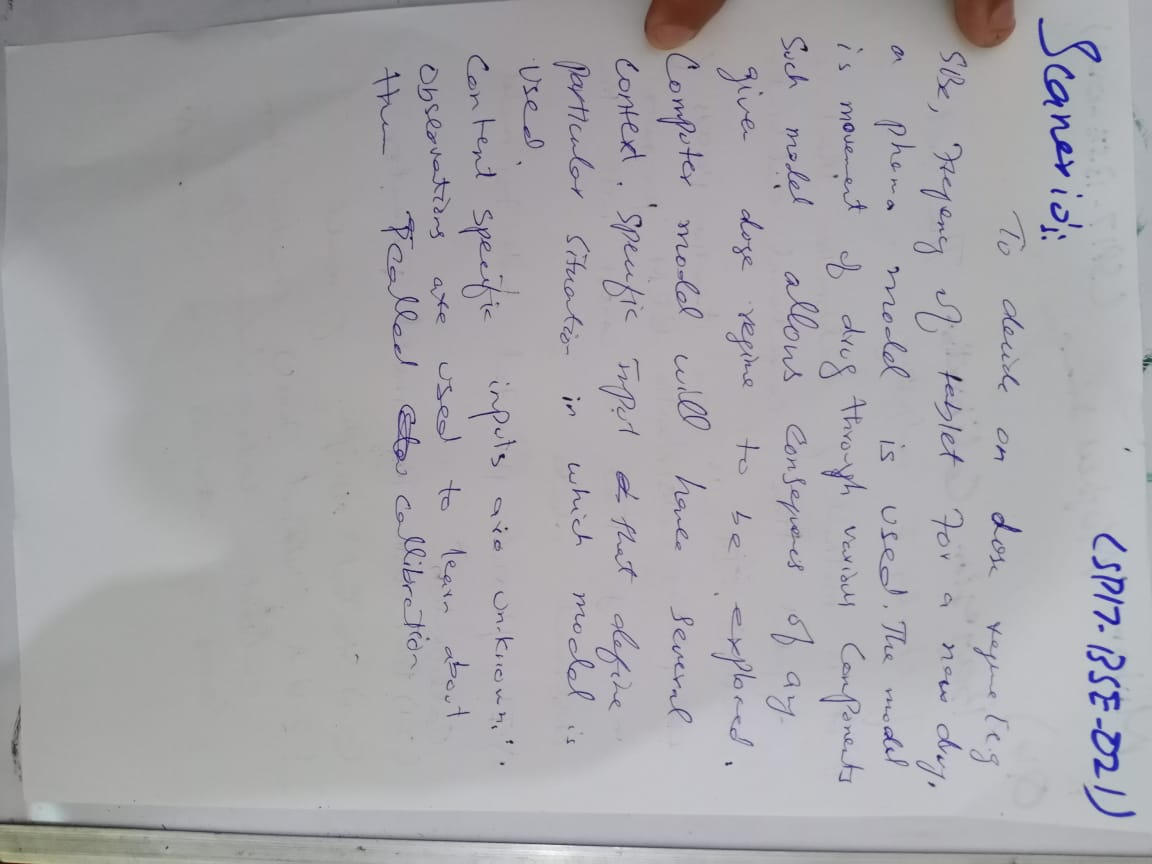 (SP17-BSE-021)
Scanerio:
To decide on dose regime (eg
size, freqency of tablet For a new drug,
a phama model is used. The model
is movement of drug through various components
Such model allows conseqences of ay
given dose regime to be explored.
Computer model will have several
context. specific input that define
particular situation in which model is
used.
Content specific inputs are unknown.
observations are used to learn about
them called callibretion.